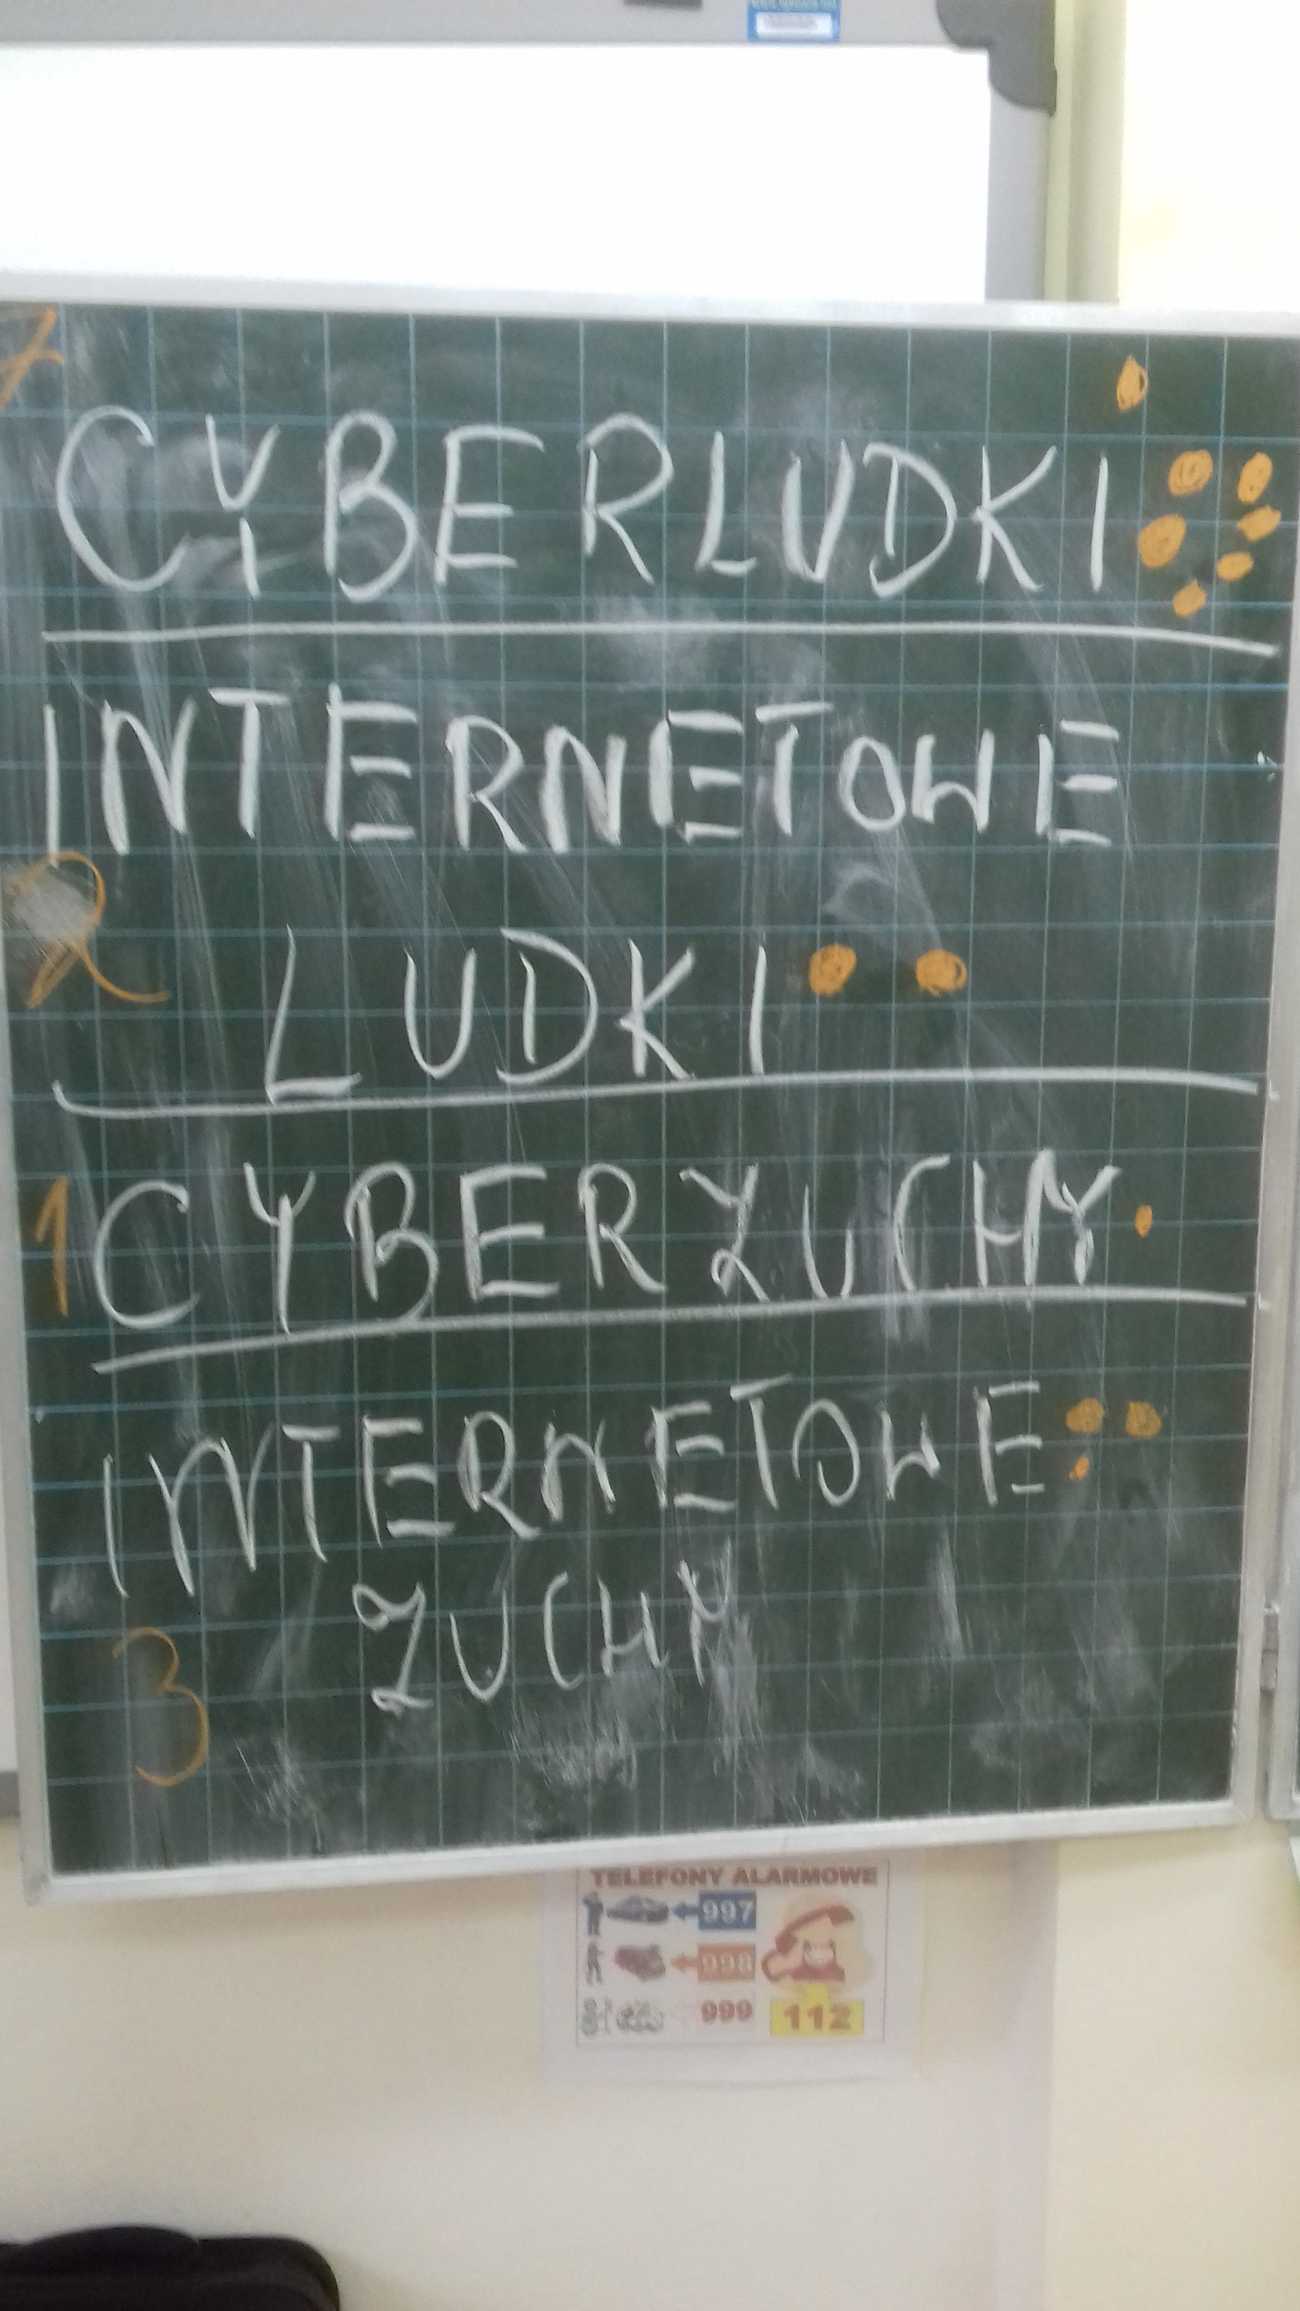 7
CYBERLUDKI
INTERNETOWE
2
LUDKI
1 CYBERZUCHY
INTERNETOWE
ZUCHY
3
TELEFONY ALARMOWE
997
998
999
112